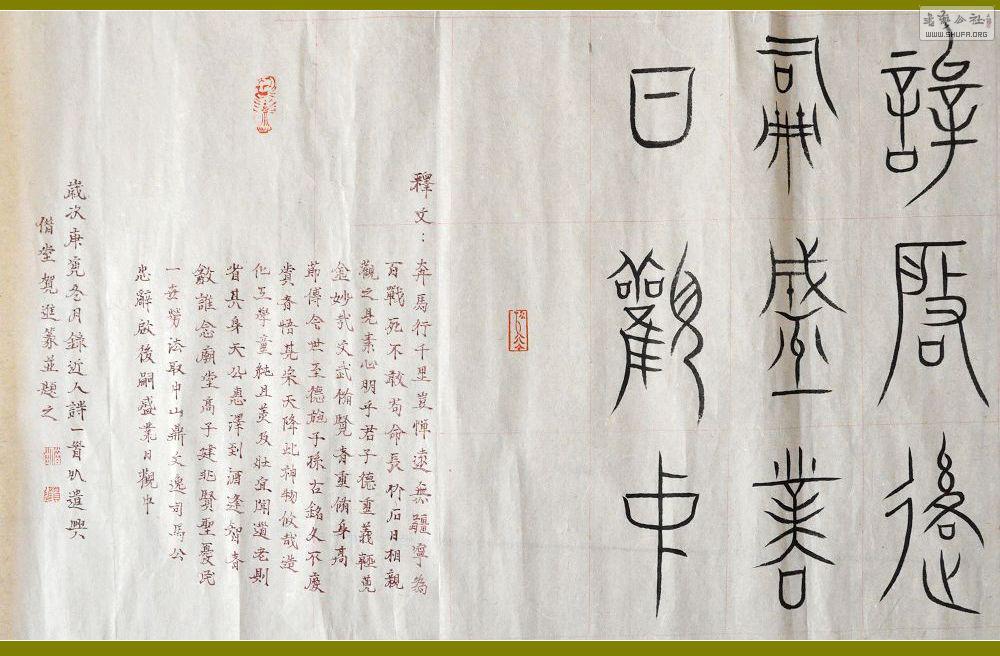 辭啟後
嗣盛業
日觀中
釋文：奔馬行千里豈憚遠無疆寧為
百戰死不敢苟命長介石日相親
觀之見素心明乎君子德重義輕萬
金妙哉文武備賢者重脩身高
節傳令世至德施子孫古銘久不廢
賞者悟其深天降此神物攸哉造
化工學童純且羨及壯宜聞道老則
省其身天公惠澤到酒逢智者
誰念廟堂高子建非賢聖憂民
一勞法取中山鼎文逸司馬公
忠辭啟後嗣盛業日觀中
歲次庚寅冬月錄近人詩一首以遣興
堂賀進篆並題之
书艺公社
WWW.SHUFA.ORG